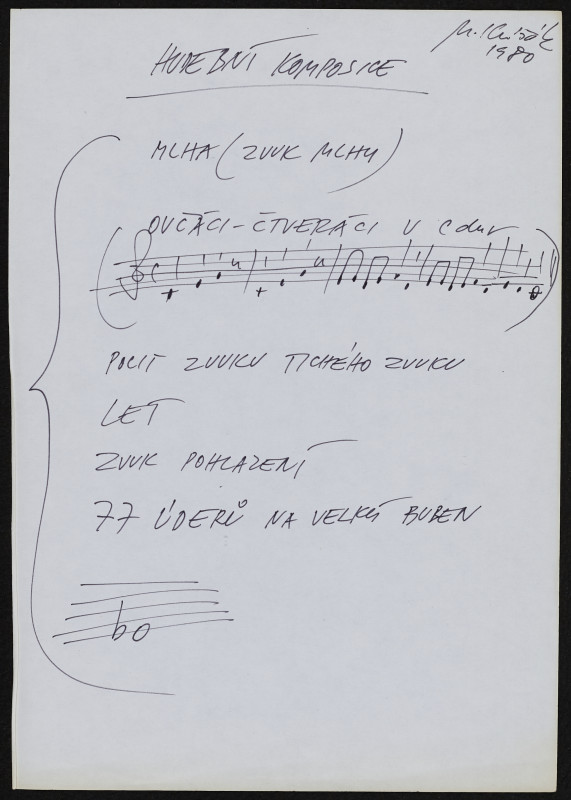 M. Knížák
1980
HUDEBNÍ KOMPOSICE
MLHA (ZVUK MLHY)
OVČÁCI-ČTVERÁCI V C dur
POCIT ZVUKU TICHÉHO ZVUKU
LET
ZVUK POHLAZENÍ
77 ÚDERŮ NA VELKÝ BUBEN